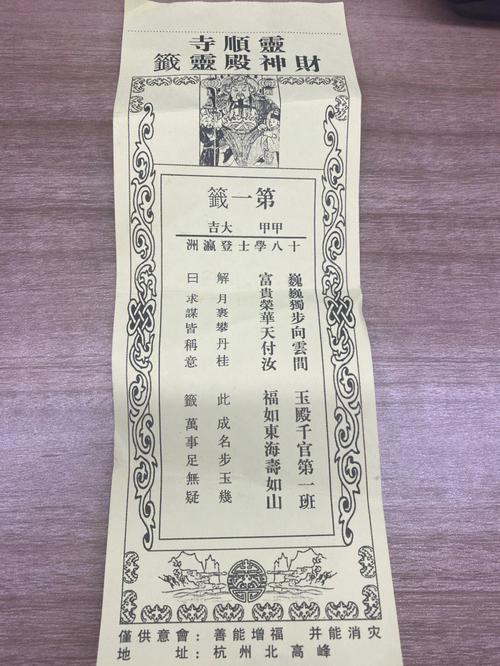 靈順寺
財神殿靈籤
第一籤
甲甲 大吉
十八學士登瀛洲
巍巍獨步向雲間 玉殿千官第一班
富貴榮華天付汝 福如東海壽如山
解 月裹攀丹桂 此 成名步玉幾
曰 求謀皆稱意 籤 萬事足無疑
僅供意會：善能增福 并能消灾
地 址：杭州北高峰